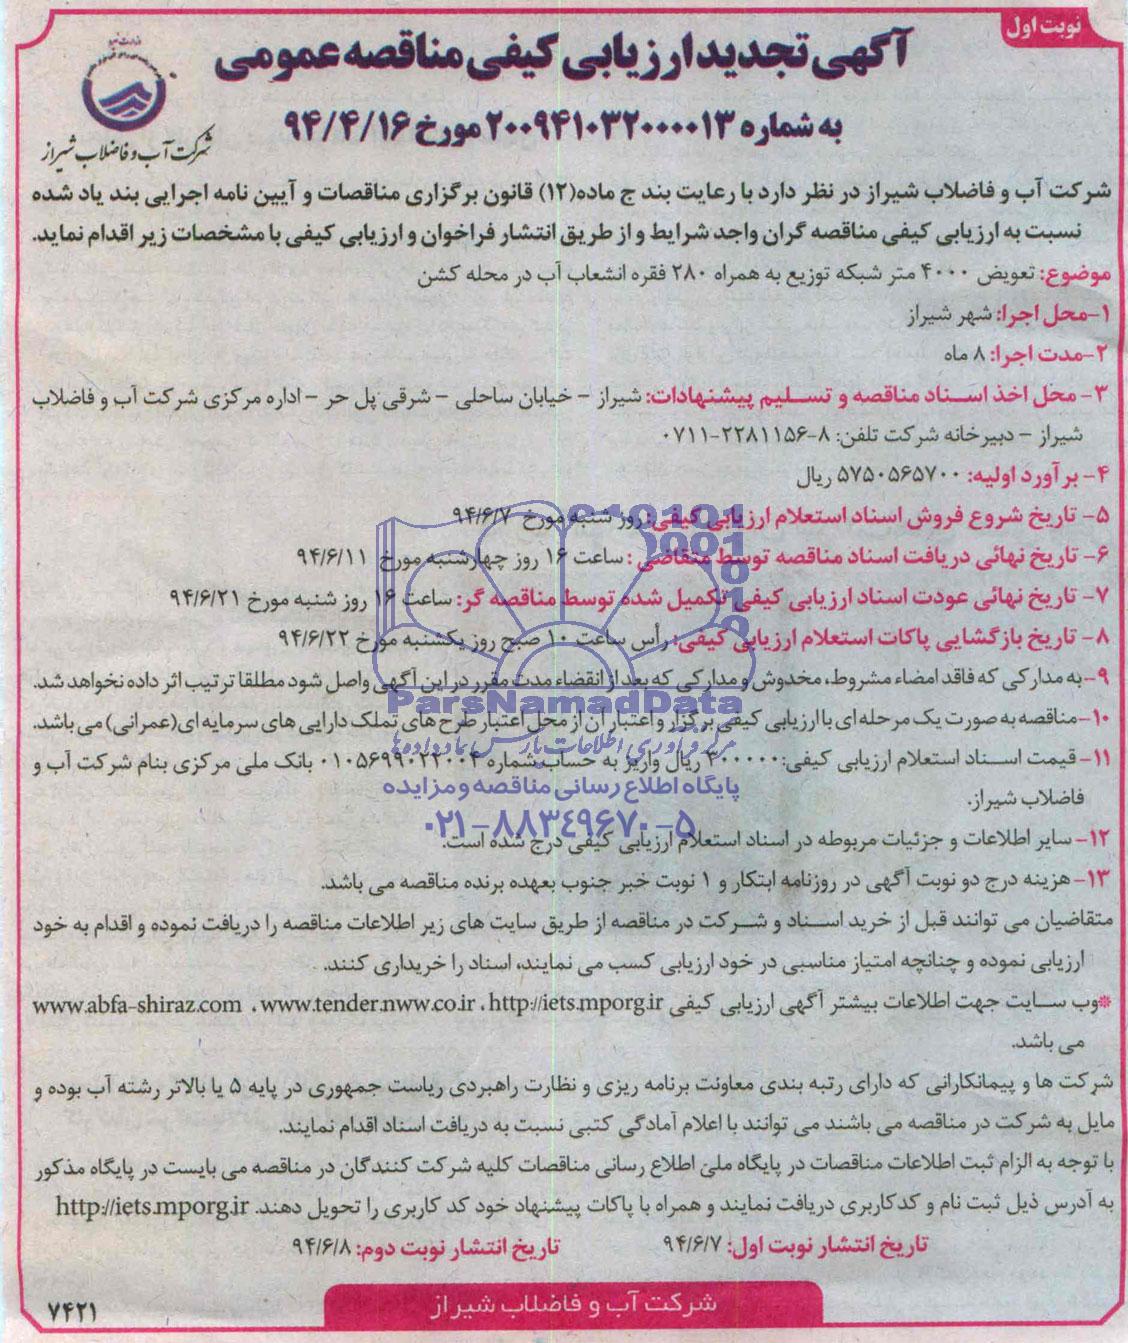 نوبت اول
آگهی تجدید ارزیابی کیفی مناقصه عمومی
به شماره ۲۰۰۹۴۱۰۳۲۰۰۰۰۱۳ مورخ ۹۴/۴/۱۶
شرکت آب و فاضلاب شیراز
شرکت آب و فاضلاب شیراز در نظر دارد با رعایت بند ج ماده(۱۲) قانون برگزاری مناقصات و آیین نامه اجرایی بند یاد شده
نسبت به ارزیابی کیفی مناقصه گران واجد شرایط و از طریق انتشار فراخوان و ارزیابی کیفی با مشخصات زیر اقدام نماید.
موضوع: تعویض ۴۰۰۰ متر شبکه توزیع به همراه ۲۸۰ فقره انشعاب آب در محله کشن
۱-محل اجرا: شهر شیراز
۲-مدت اجرا: ۸ ماه
۳- محل اخذ اسناد مناقصه و تسلیم پیشنهادات: شیراز - خیابان ساحلی - شرقی پل حر - اداره مرکزی شرکت آب و فاضلاب
شیراز - دبیرخانه شرکت تلفن: ۸-۲۲۸۱۱۵۶-۰۷۱۱
۴- برآورد اولیه: ۵۷۵۰۵۶۵۷۰۰ ریال
۵- تاریخ شروع فروش اسناد استعلام ارزیابی کیفی: روز شنبه مورخ ۹۴/۶/۷
۶- تاریخ نهائی دریافت اسناد مناقصه توسط متقاضی : ساعت ۱۶ روز چهارشنبه مورخ ۹۴/۶/۱۱
۷- تاریخ نهائی عودت اسناد ارزیابی کیفی تکمیل شده توسط مناقصه گر: ساعت ۱۶ روز شنبه مورخ ۹۴/۶/۲۱
۸- تاریخ بازگشایی پاکات استعلام ارزیابی کیفی: رأس ساعت ۱۰ صبح روز یکشنبه مورخ ۹۴/۶/۲۲
۹-به مدارکی که فاقد امضاء مشروط، مخدوش و مدارکی که بعد از انقضاء مدت مقرر در این آگهی واصل شود مطلقا ترتیب اثر داده نخواهد شد.
ParsNamadData
۱۰-مناقصه به صورت یک مرحله ای با ارزیابی کیفی برگزار و اعتبار آن از محل اعتبار طرح های تملک دارایی های سرمایه ای(عمرانی) می باشد.
مرکز فرآوری اطلاعات پارس نماد داده ها
۱۱- قیمت اسناد استعلام ارزیابی کیفی: ۳۰۰۰۰۰ ریال واریز به حساب شماره ۰۱۰۵۶۹۹۰۲۲۰۰۴ بانک ملی مرکزی بنام شرکت آب و
پایگاه اطلاع رسانی مناقصه و مزایده
فاضلاب شیراز.
۰۲۱-۸۸۳۴۹۶۷۰-۵
۱۲- سایر اطلاعات و جزئیات مربوطه در اسناد استعلام ارزیابی کیفی درج شده است.
۱۳- هزینه درج دو نوبت آگهی در روزنامه ابتکار و ۱ نوبت خبر جنوب بعهده برنده مناقصه می باشد.
متقاضیان می توانند قبل از خرید اسناد و شرکت در مناقصه از طریق سایت های زیر اطلاعات مناقصه را دریافت نموده و اقدام به خود
ارزیابی نموده و چنانچه امتیاز مناسبی در خود ارزیابی کسب می نمایند، اسناد را خریداری کنند.
*وب سایت جهت اطلاعات بیشتر آگهی ارزیابی کیفی www.abfa-shiraz.com ، www.tender.nww.co.ir ، http://iets.mporg.ir
می باشد.
شرکت ها و پیمانکارانی که دارای رتبه بندی معاونت برنامه ریزی و نظارت راهبردی ریاست جمهوری در پایه ۵ یا بالاتر رشته آب بوده و
مایل به شرکت در مناقصه می باشند می توانند با اعلام آمادگی کتبی نسبت به دریافت اسناد اقدام نمایند.
با توجه به الزام ثبت اطلاعات مناقصات در پایگاه ملی اطلاع رسانی مناقصات کلیه شرکت کنندگان در مناقصه می بایست در پایگاه مذکور
به آدرس ذیل ثبت نام و کدکاربری دریافت نمایند و همراه با پاکات پیشنهاد خود کد کاربری را تحویل دهند. http://iets.mporg.ir
تاریخ انتشار نوبت اول: ۹۴/۶/۷ تاریخ انتشار نوبت دوم: ۹۴/۶/۸
شرکت آب و فاضلاب شیراز
۷۴۲۱